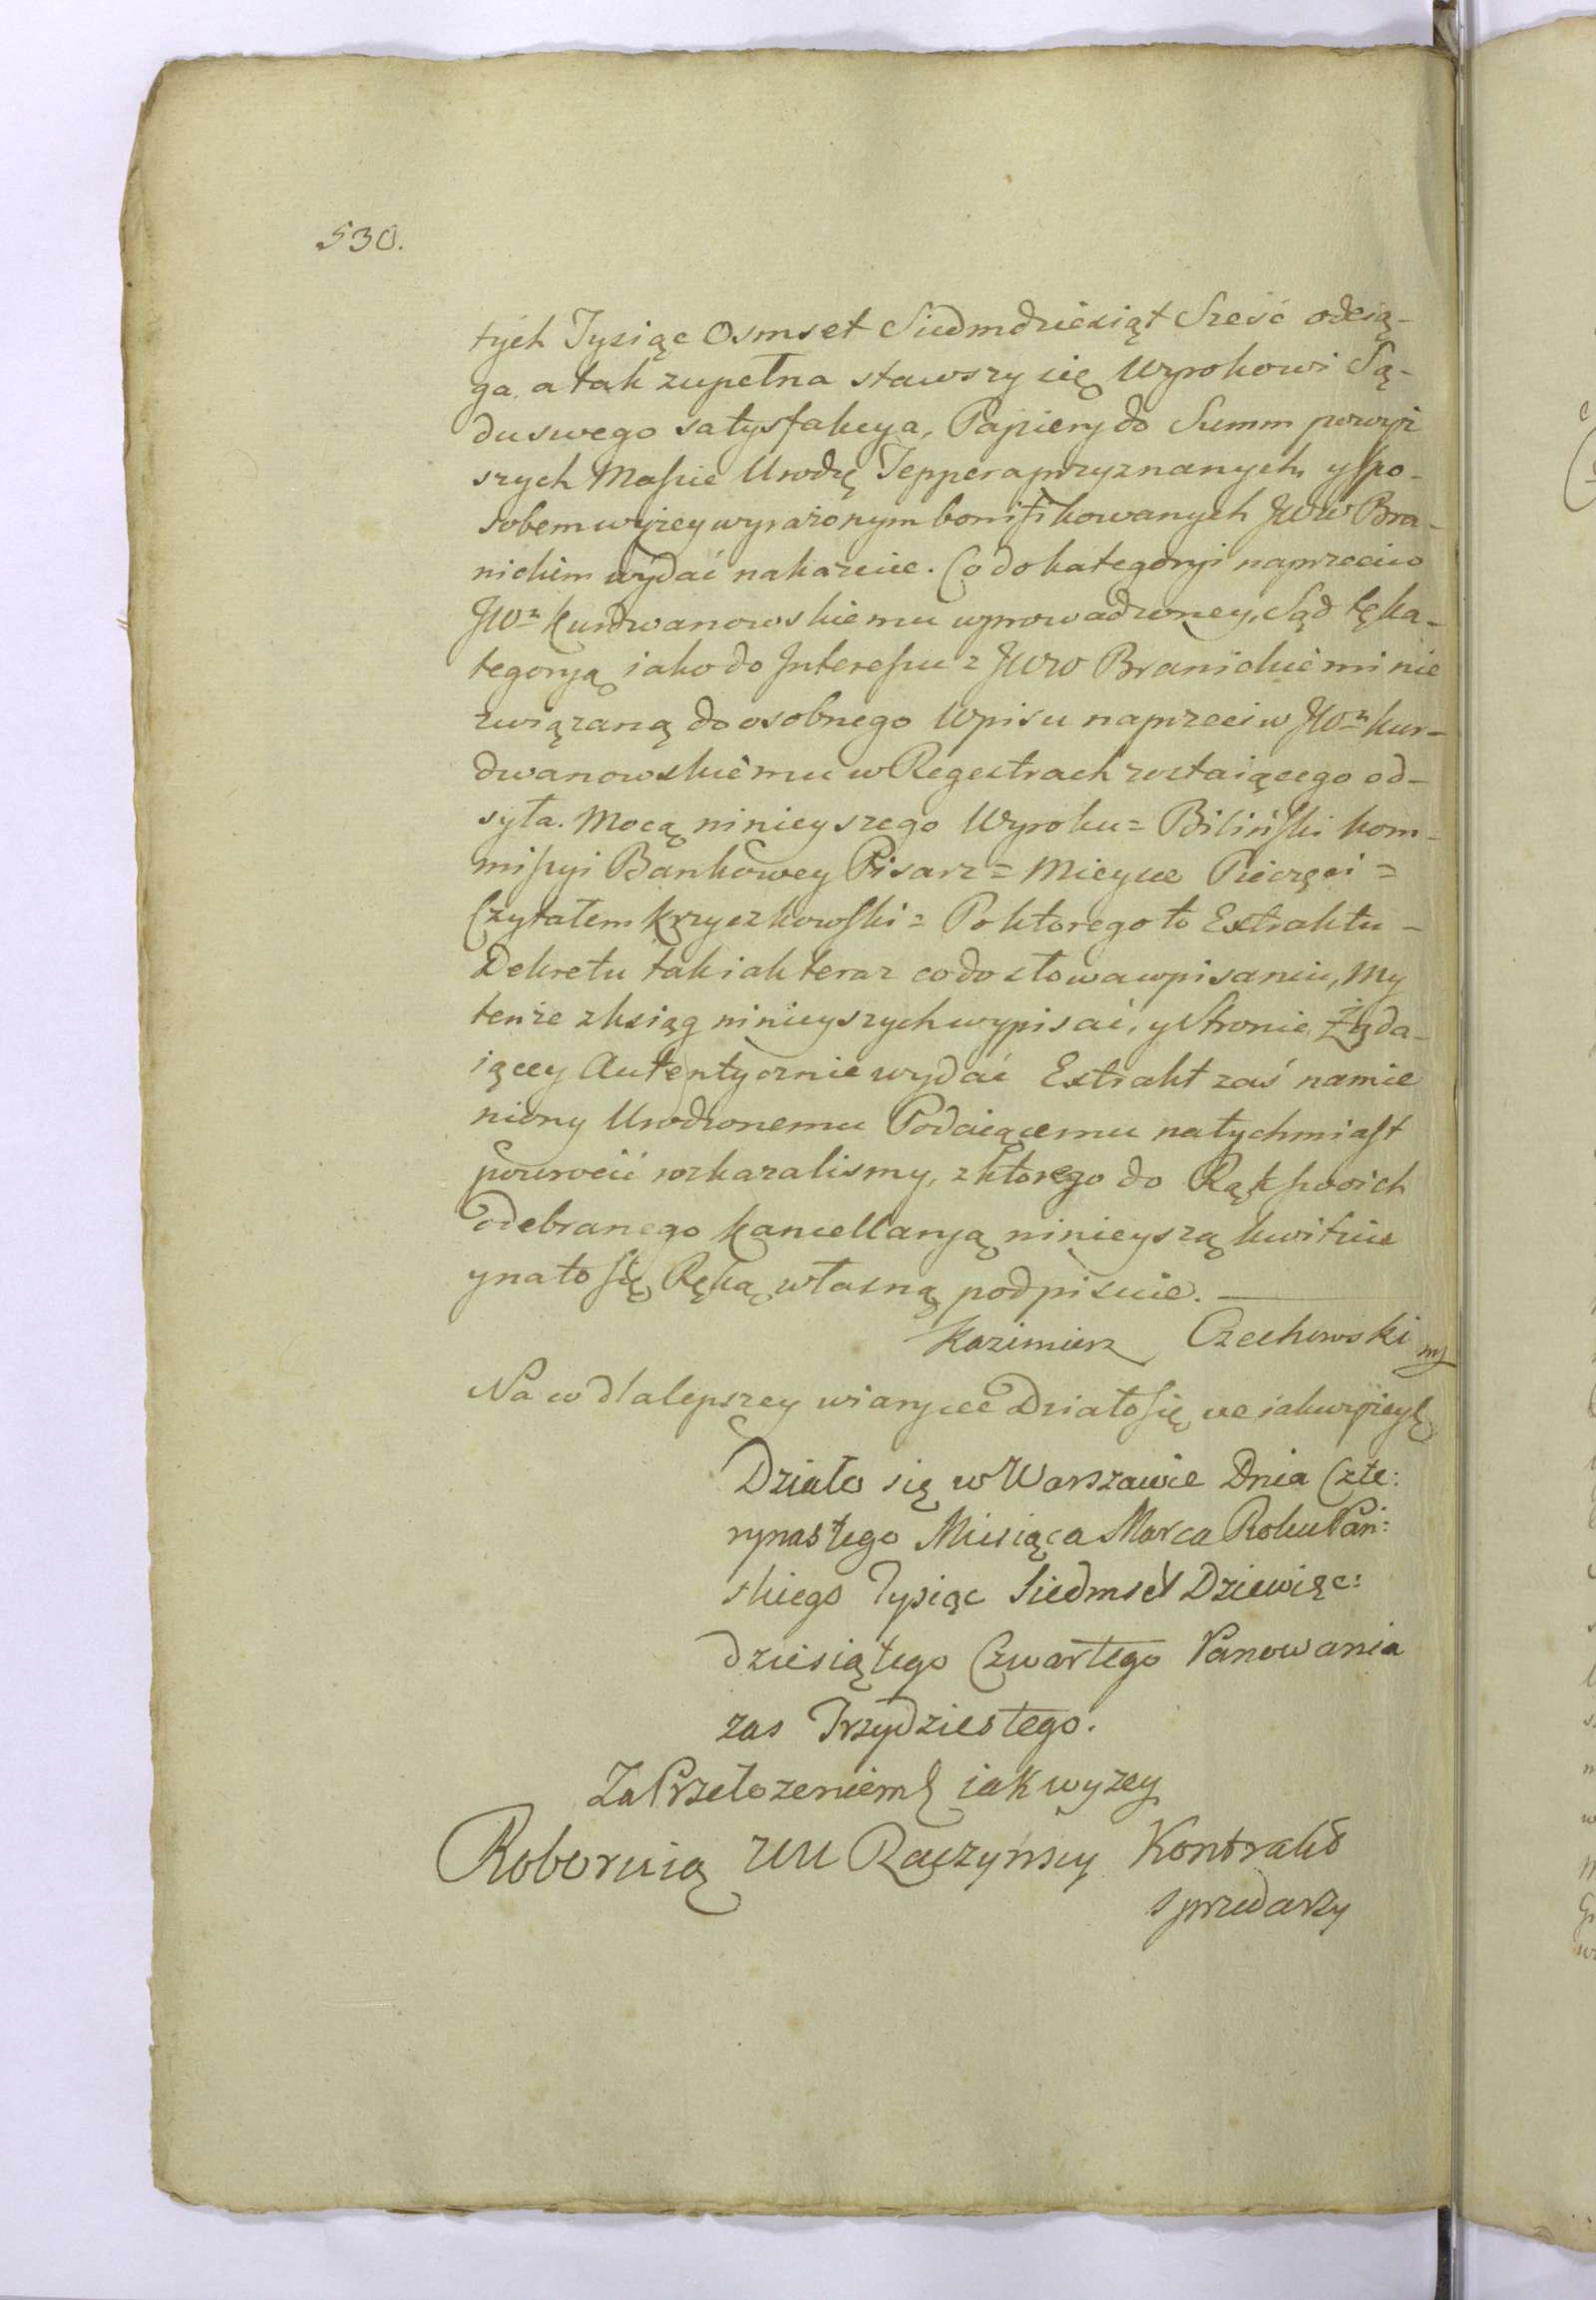 530.
tych Tysiąc Osmset Siedmdziesiąt Sześć odcią-
ga, a tak zupełna stawszy się Wyrokowi Są-
du swego satysfakcya, Papiery do Summ powyż
szych Massie Urodzę Teppera przyznanych, y spo-
sobem wyżey wyrażonym bonifikowanych JWW Bra-
nickim wydać nakazuie. Co do kategoryi naprzeciwo
JWu Kurdwanowskiemu wprowadzoney, Sąd tę ka-
tegoryą iako do Interessu z JWW Branickiemi nie
związaną do osobnego Wpisu naprzeciw JWu Kur-
dwanowskiemu w Regestrach zostaiącego od-
syła. Mocą ninieyszego Wyroku = Biliński Kom-
missyi Bankowey Pisarz = Mieysce Pieczęci =
Czytałem Krzyczkowski = Po ktorego to Extraktu -
Dekretu tak iak teraz co do słowa wpisaniu, My
tenże z ksiąg ninieyszych wypisać, y Stronie Żąda-
iącey Autentycznie wydać Extrakt zaś namie
niony Urodzonemu Podaiącemu natychmiast
powrocić rozkazalismy, z ktorego do Rąk swoich
odebranego Kancellaryą ninieyszą kwituie
y na to się Ręką własną podpisuie.
Kazimierz Czechowski mp
Na co dla lepszey wiary etc Działo się etc iak wyżey
Działo się w Warszawie Dnia Czte:
rynastego Miesiąca Marca Roku Pań:
skiego Tysiąc Siedmset Dziewięć:
dziesiątego Czwartego Panowania
zas Trzydziestego.
Za Przełozeniem iak wyzey
Roboruią UU Raczyńscy Kontrakt
sprzedarzy